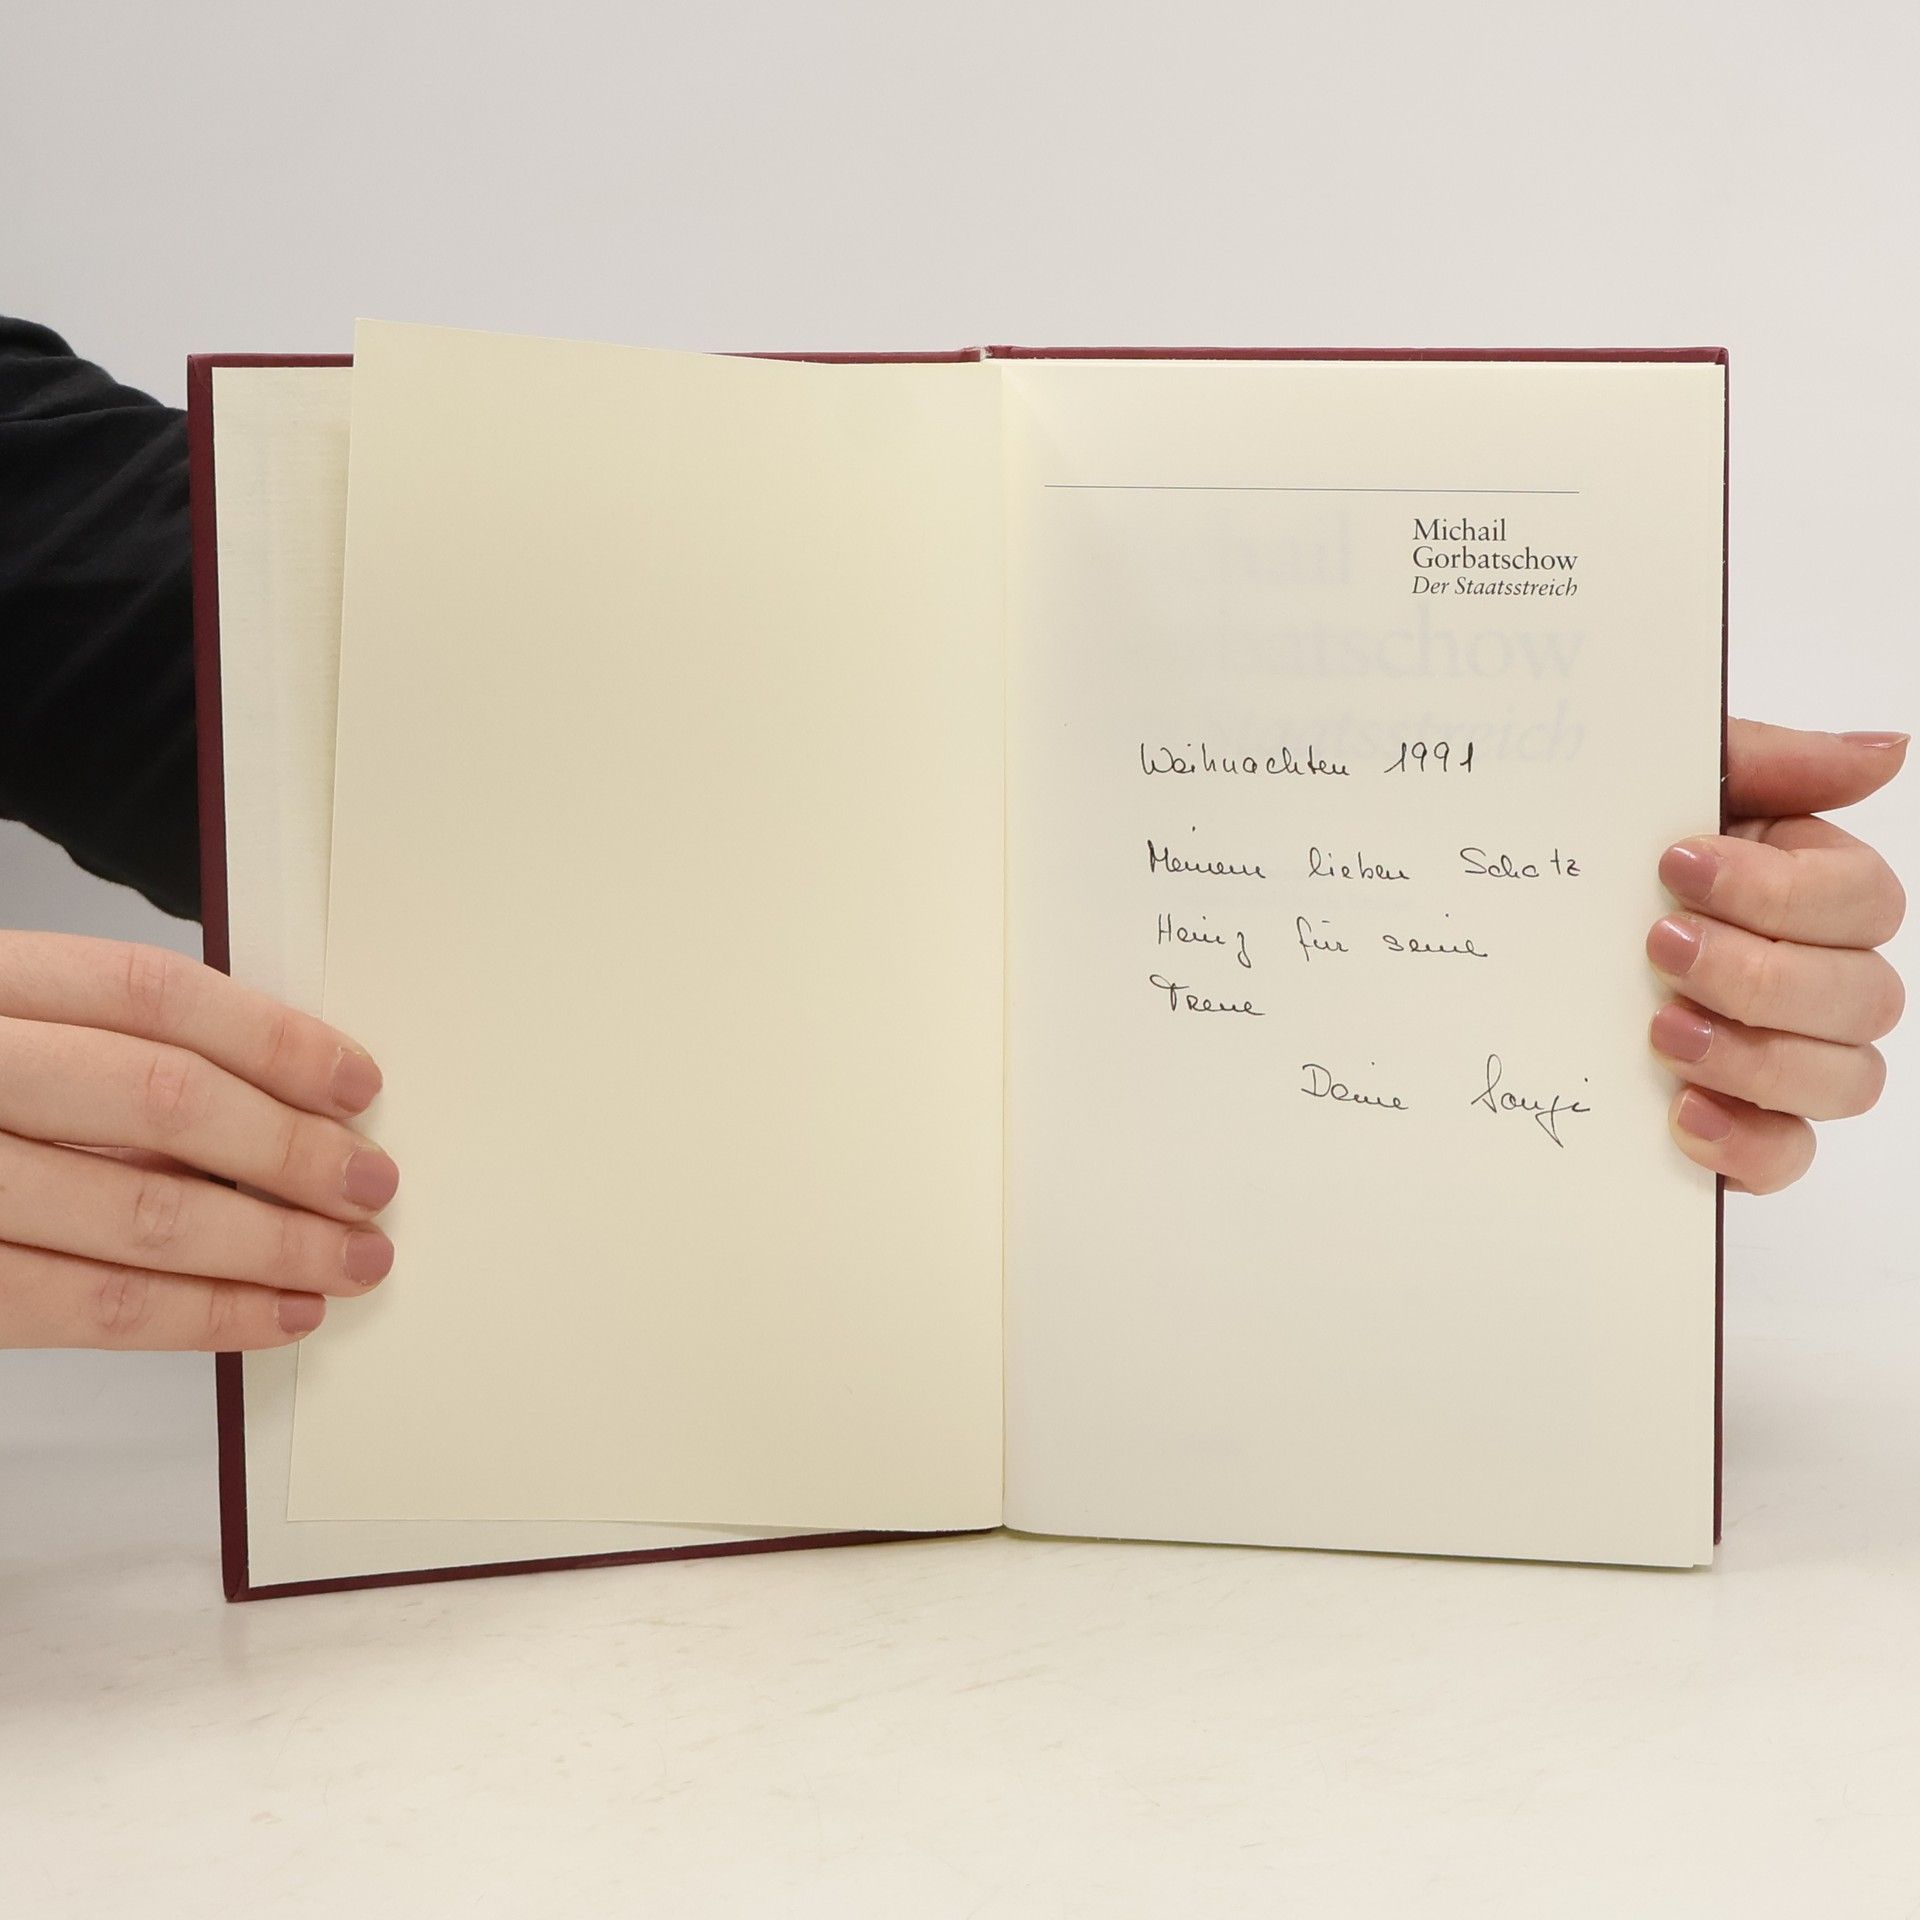 Michail
Gorbatschow
Der Staatsstreich
Weihnachten 1991
Meinem lieben Schatz
Heinz für seine
Treue
Deine